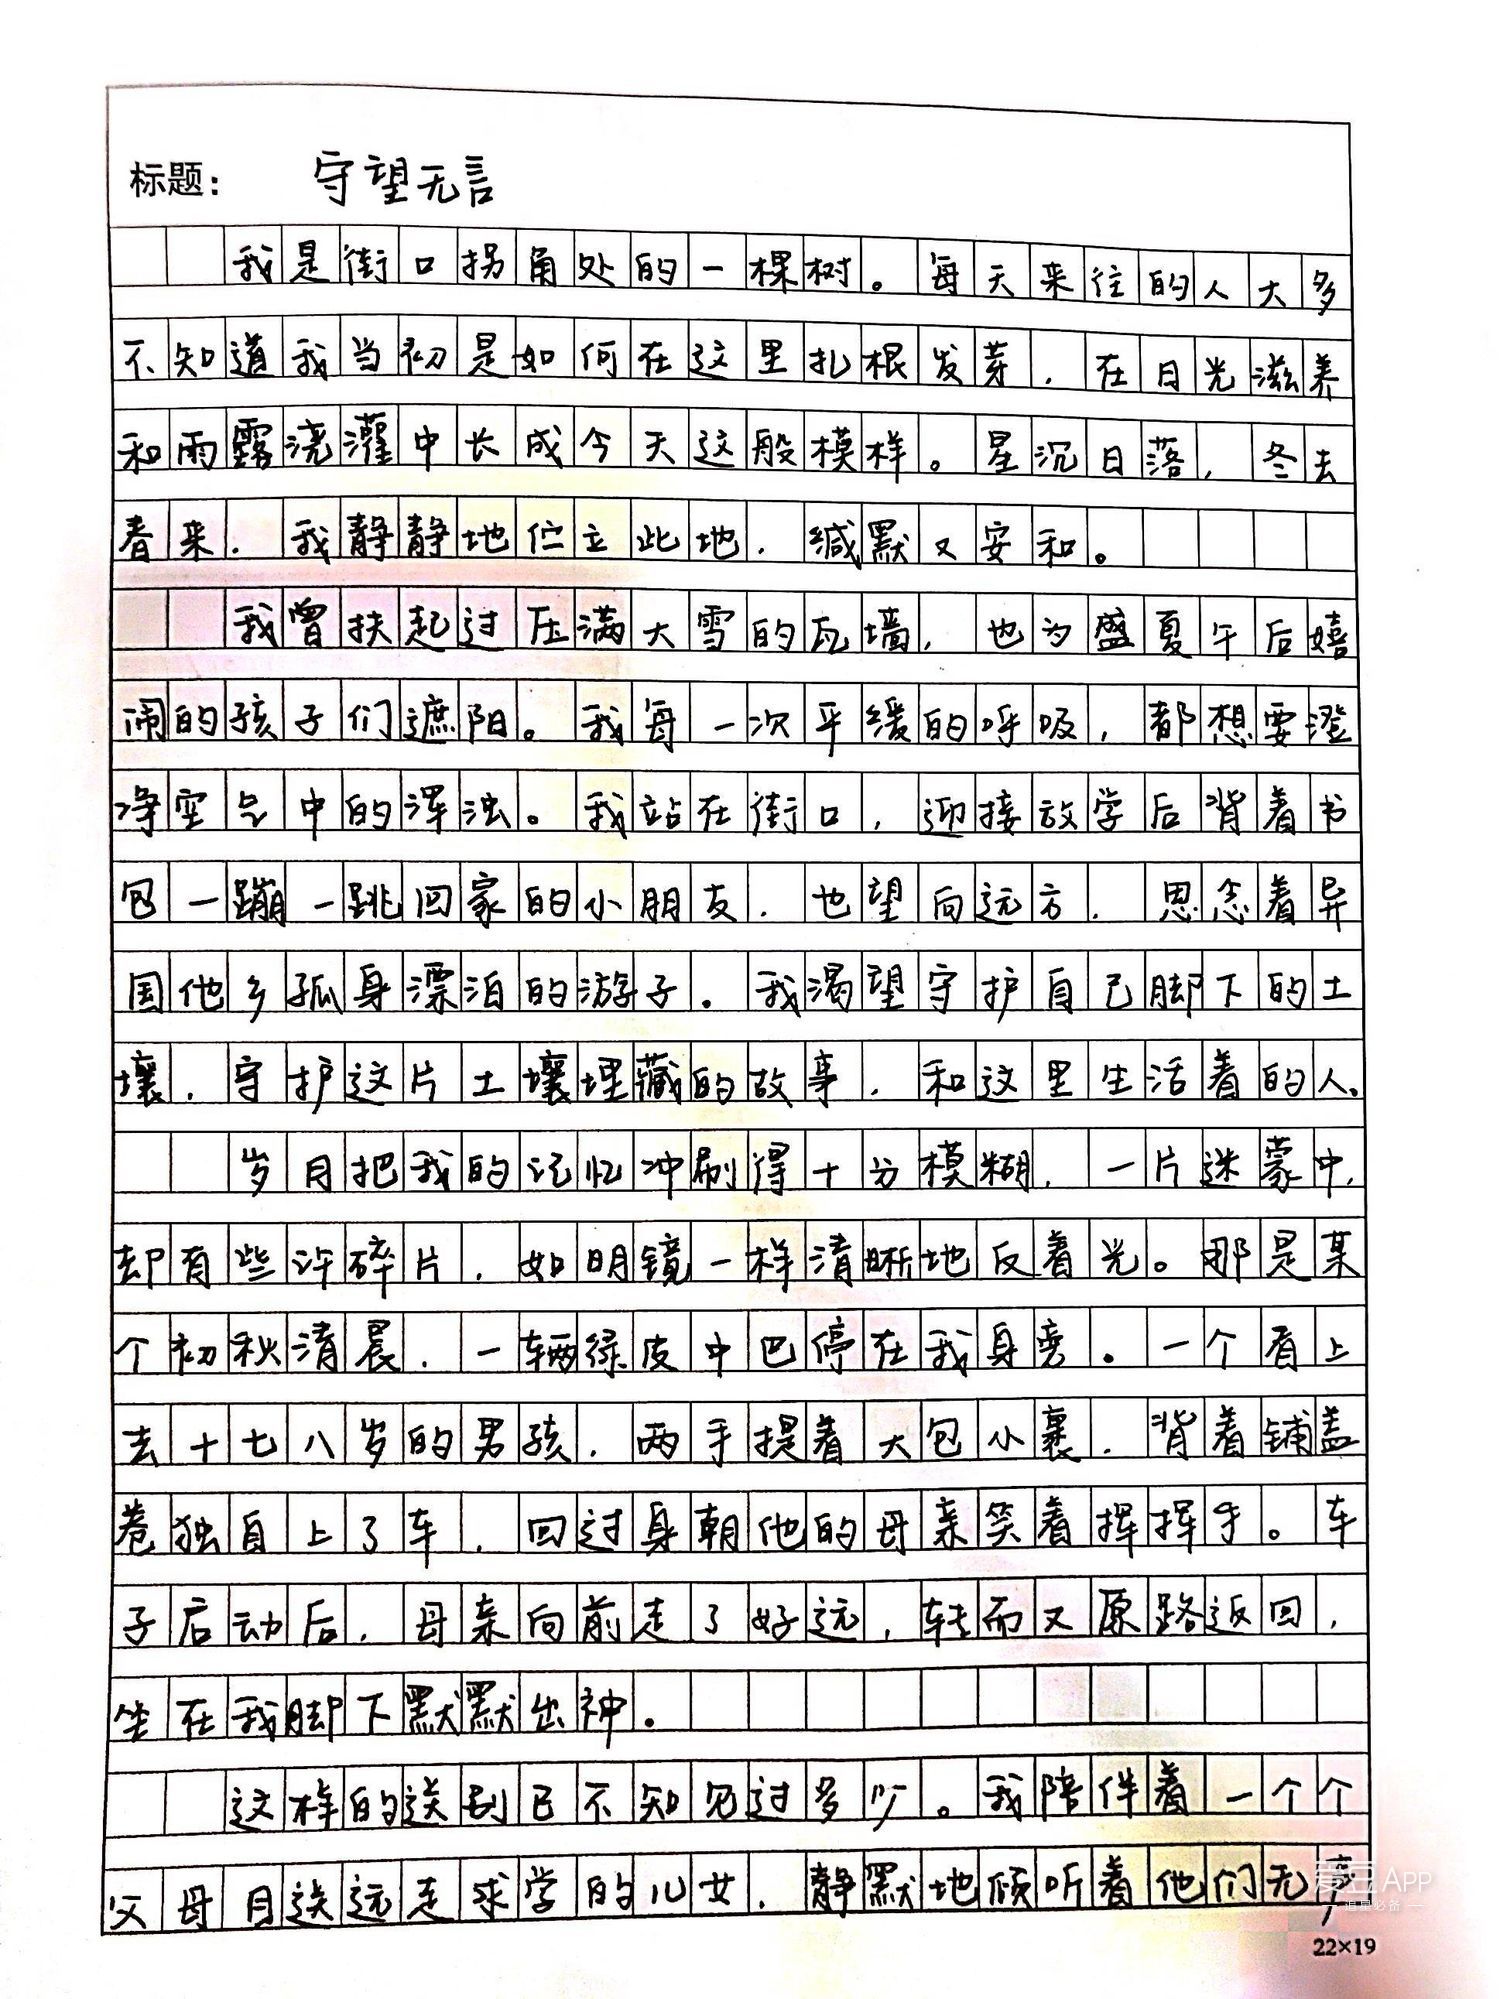 标题： 守望无言
我是街口拐角处的一棵树。每天来往的人大多
不知道我当初是如何在这里扎根发芽，在日光滋养
和雨露浇灌中长成今天这般模样。星沉日落，冬去
春来，我静静地伫立此地，缄默又安和。
我曾扶起过压满大雪的瓦墙，也为盛夏午后嬉
闹的孩子们遮阳。我每一次平缓的呼吸，都想要澄
净空气中的浑浊。我站在街口，迎接放学后背着书
包一蹦一跳回家的小朋友，也望向远方，思念着异
国他乡孤身漂泊的游子。我渴望守护自己脚下的土
壤，守护这片土壤埋藏的故事，和这里生活着的人。
岁月把我的记忆冲刷得十分模糊，一片迷蒙中，
却有些许碎片，如明镜一样清晰地反着光。那是某
个初秋清晨，一辆绿皮中巴停在我身旁。一个看上
去十七八岁的男孩，两手提着大包小裹，背着铺盖
卷独自上了车，回过身朝他的母亲笑着挥挥手。车
子启动后，母亲向前走了好远，转而又原路返回，
坐在我脚下默默出神。
这样的送别已不知见过多少。我陪伴着一个个
父母目送远走求学的儿女，静默地倾听着他们无声
爱豆APP
追星必备
22×19